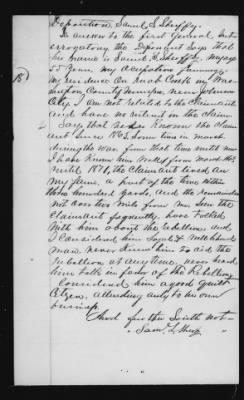 Deposition Samuel L. Sheffy.
In answer to the first General Inter
rogatory the Deponent Says that
his name is Samuel L. Sheffy, my age
57 years, my occupation farming.
my residence On Knob Creek in Wash
ington County Tennessee near Johnson
City. I am not related to the Claimant
and have no interest in the Claim
Says that I have Known the claim
ant since 186 Some time in
during the War. from that time until now
I have Known him
until 1871, the Claimant lived on
my farm, a part of the time within
three hundred yards, and the remainder
not over two miles from me. Seen the
Claimant frequently, have talked
with him about the rebellion and
I considered him loyal &
man. never knew him to aid the
rebellion at any time. never heard
him talk in favor of the Rebellion
Considered him a good quiet
Citizen, attending only to his own
business.
And further Saith not
Saml. L.